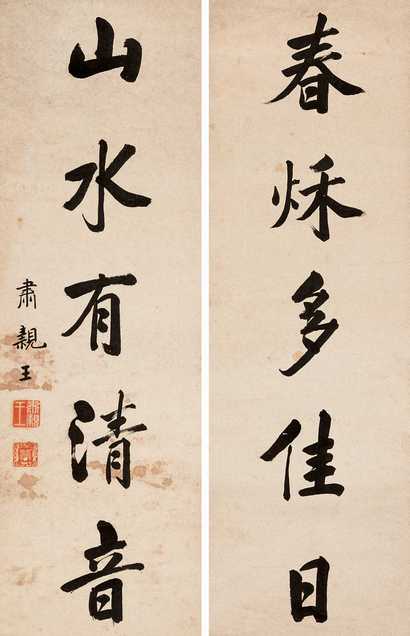 春秌多佳日
山水有清音
肅親王